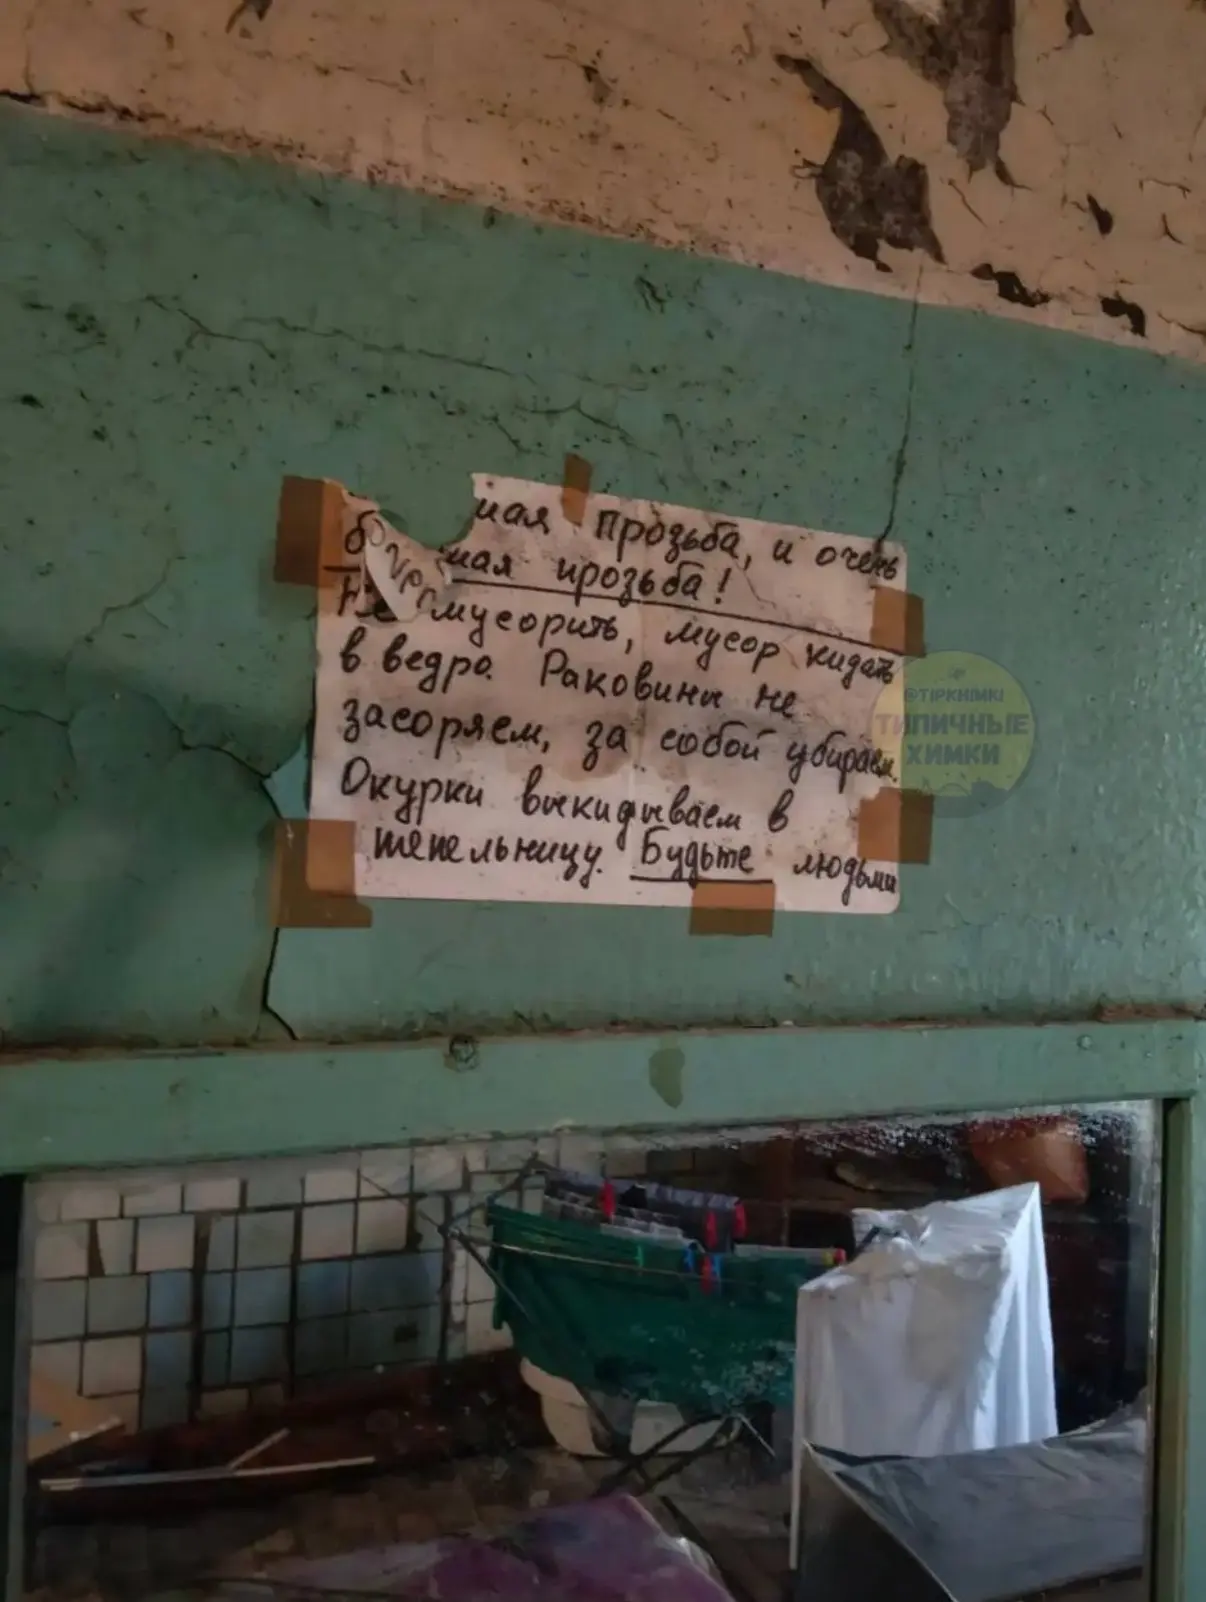 шая прозьба, и очень
шая прозьба!
Не мусорить, мусор кидать
в ведро. Раковины не
засоряем, за собой убираем.
Окурки выкидываем в
пепельницу. Будьте людьми
@TIPKHIMKI
ТИПИЧНЫЕ
ХИМКИ